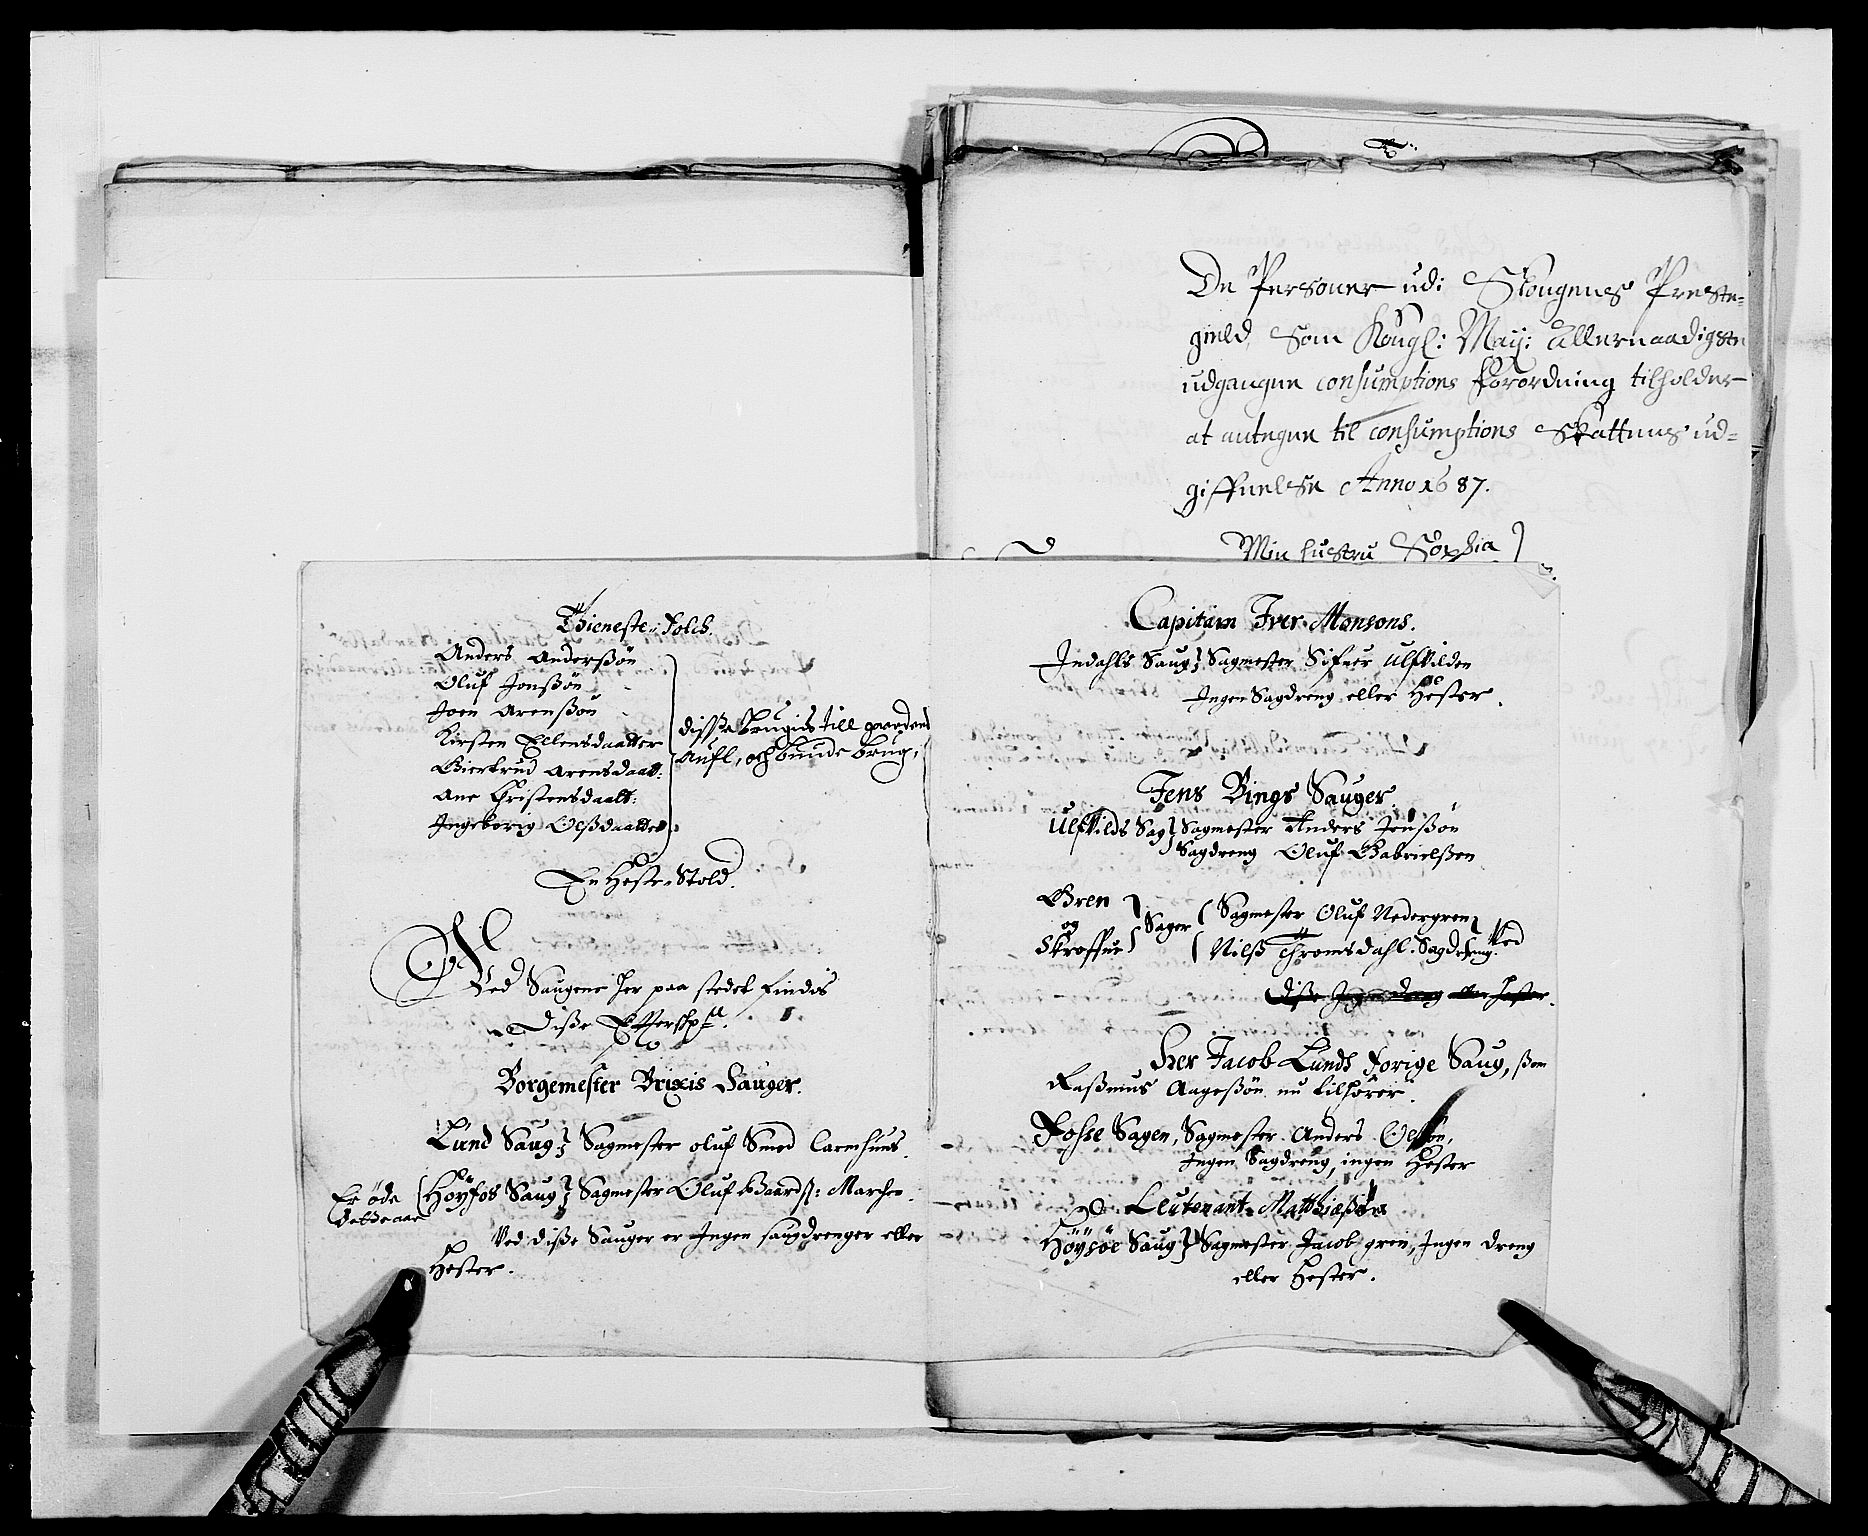 De Personer udi Skougens Preste-
gield, Som Kongl: May: Allernaadigste
udgangne consumptions forordning tilholder
at antegne til consumptions Skattens ud-
giffuelse Anno 1687.
Min hustru Sophia
Thieneste-Folch.
Anders Anderßön
Oluf Jonßön
Joen Arenßön
Kirsten Ellensdaatter
Giertrud Arensdaatt:
Ane Christensdaatt:
Ingeborig Olßdaatter
disße brugis till gaardens
aufl, och bunde brug;
En Heste-Stold.
Ved Saugene her paa stedet findis
Diße Effterschr
Borgemester Brixis Sauger.
Lund Saug; Sagmester oluf Smed
Er öde
dette aar
Höyfos Saug Sagmester Oluf Baardß: Marchen
Ved diße Sauger er Ingen saugdrenger eller
Hester.
Capitäin Iver Monsons.
Indahls Saug; Sagmester Sifuer Ulfvilden
Ingen Sagdreng eller Hester.
Jens Bings Sauger.
Ulfvilds Sag Sagmester Anders Jenßön
Sagdreng Oluf Gabrielßen
Gren
og
Skroffue
Sager
Sagmester Oluf Nedergren
Nilß Thromsdahl. Sagdreng.
Ved
diße Ingen dreng eller hester.
Her Jacob Lunds forige Saug, ßom
Raßmus Aageßön nu tilhörer.
Foße Sagen, Sagmester Anders Olßön,
Ingen Sagdreng, ingen Hester
Leutenant Matthiaßens
Höysöe Saug Sagmester Jacob gren, Ingen dreng
eller Hester.